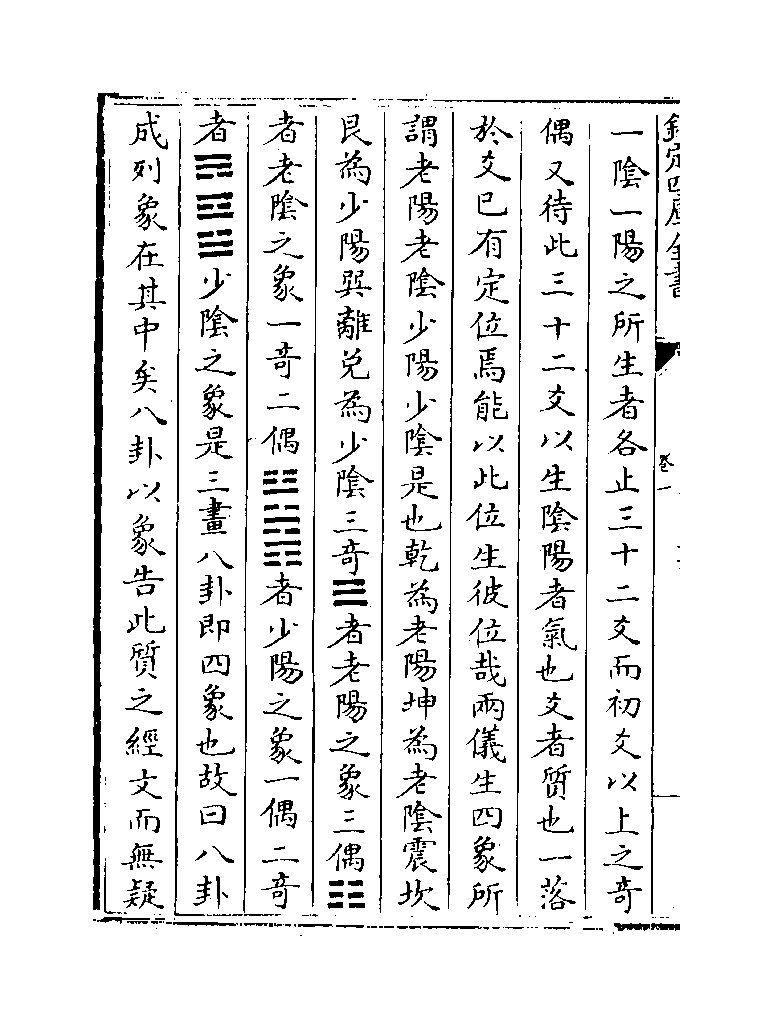 欽定四庫全書
卷一
一陰一陽之所生者各止三十二爻而初爻以上之奇
偶又待此三十二爻以生陰陽者氣也爻者質也一落
於爻已有定位焉能以此位生彼位哉兩儀生四象所
謂老陽老陰少陽少陰是也乾為老陽坤為老陰震坎
艮為少陽巽離兌為少陰三奇☰者老陽之象三偶☷
者老陰之象一奇二偶☳☵☶者少陽之象一偶二奇
者☴☲☱少陰之象是三畫八卦即四象也故曰八卦
成列象在其中矣八卦以象告此質之經文而無疑